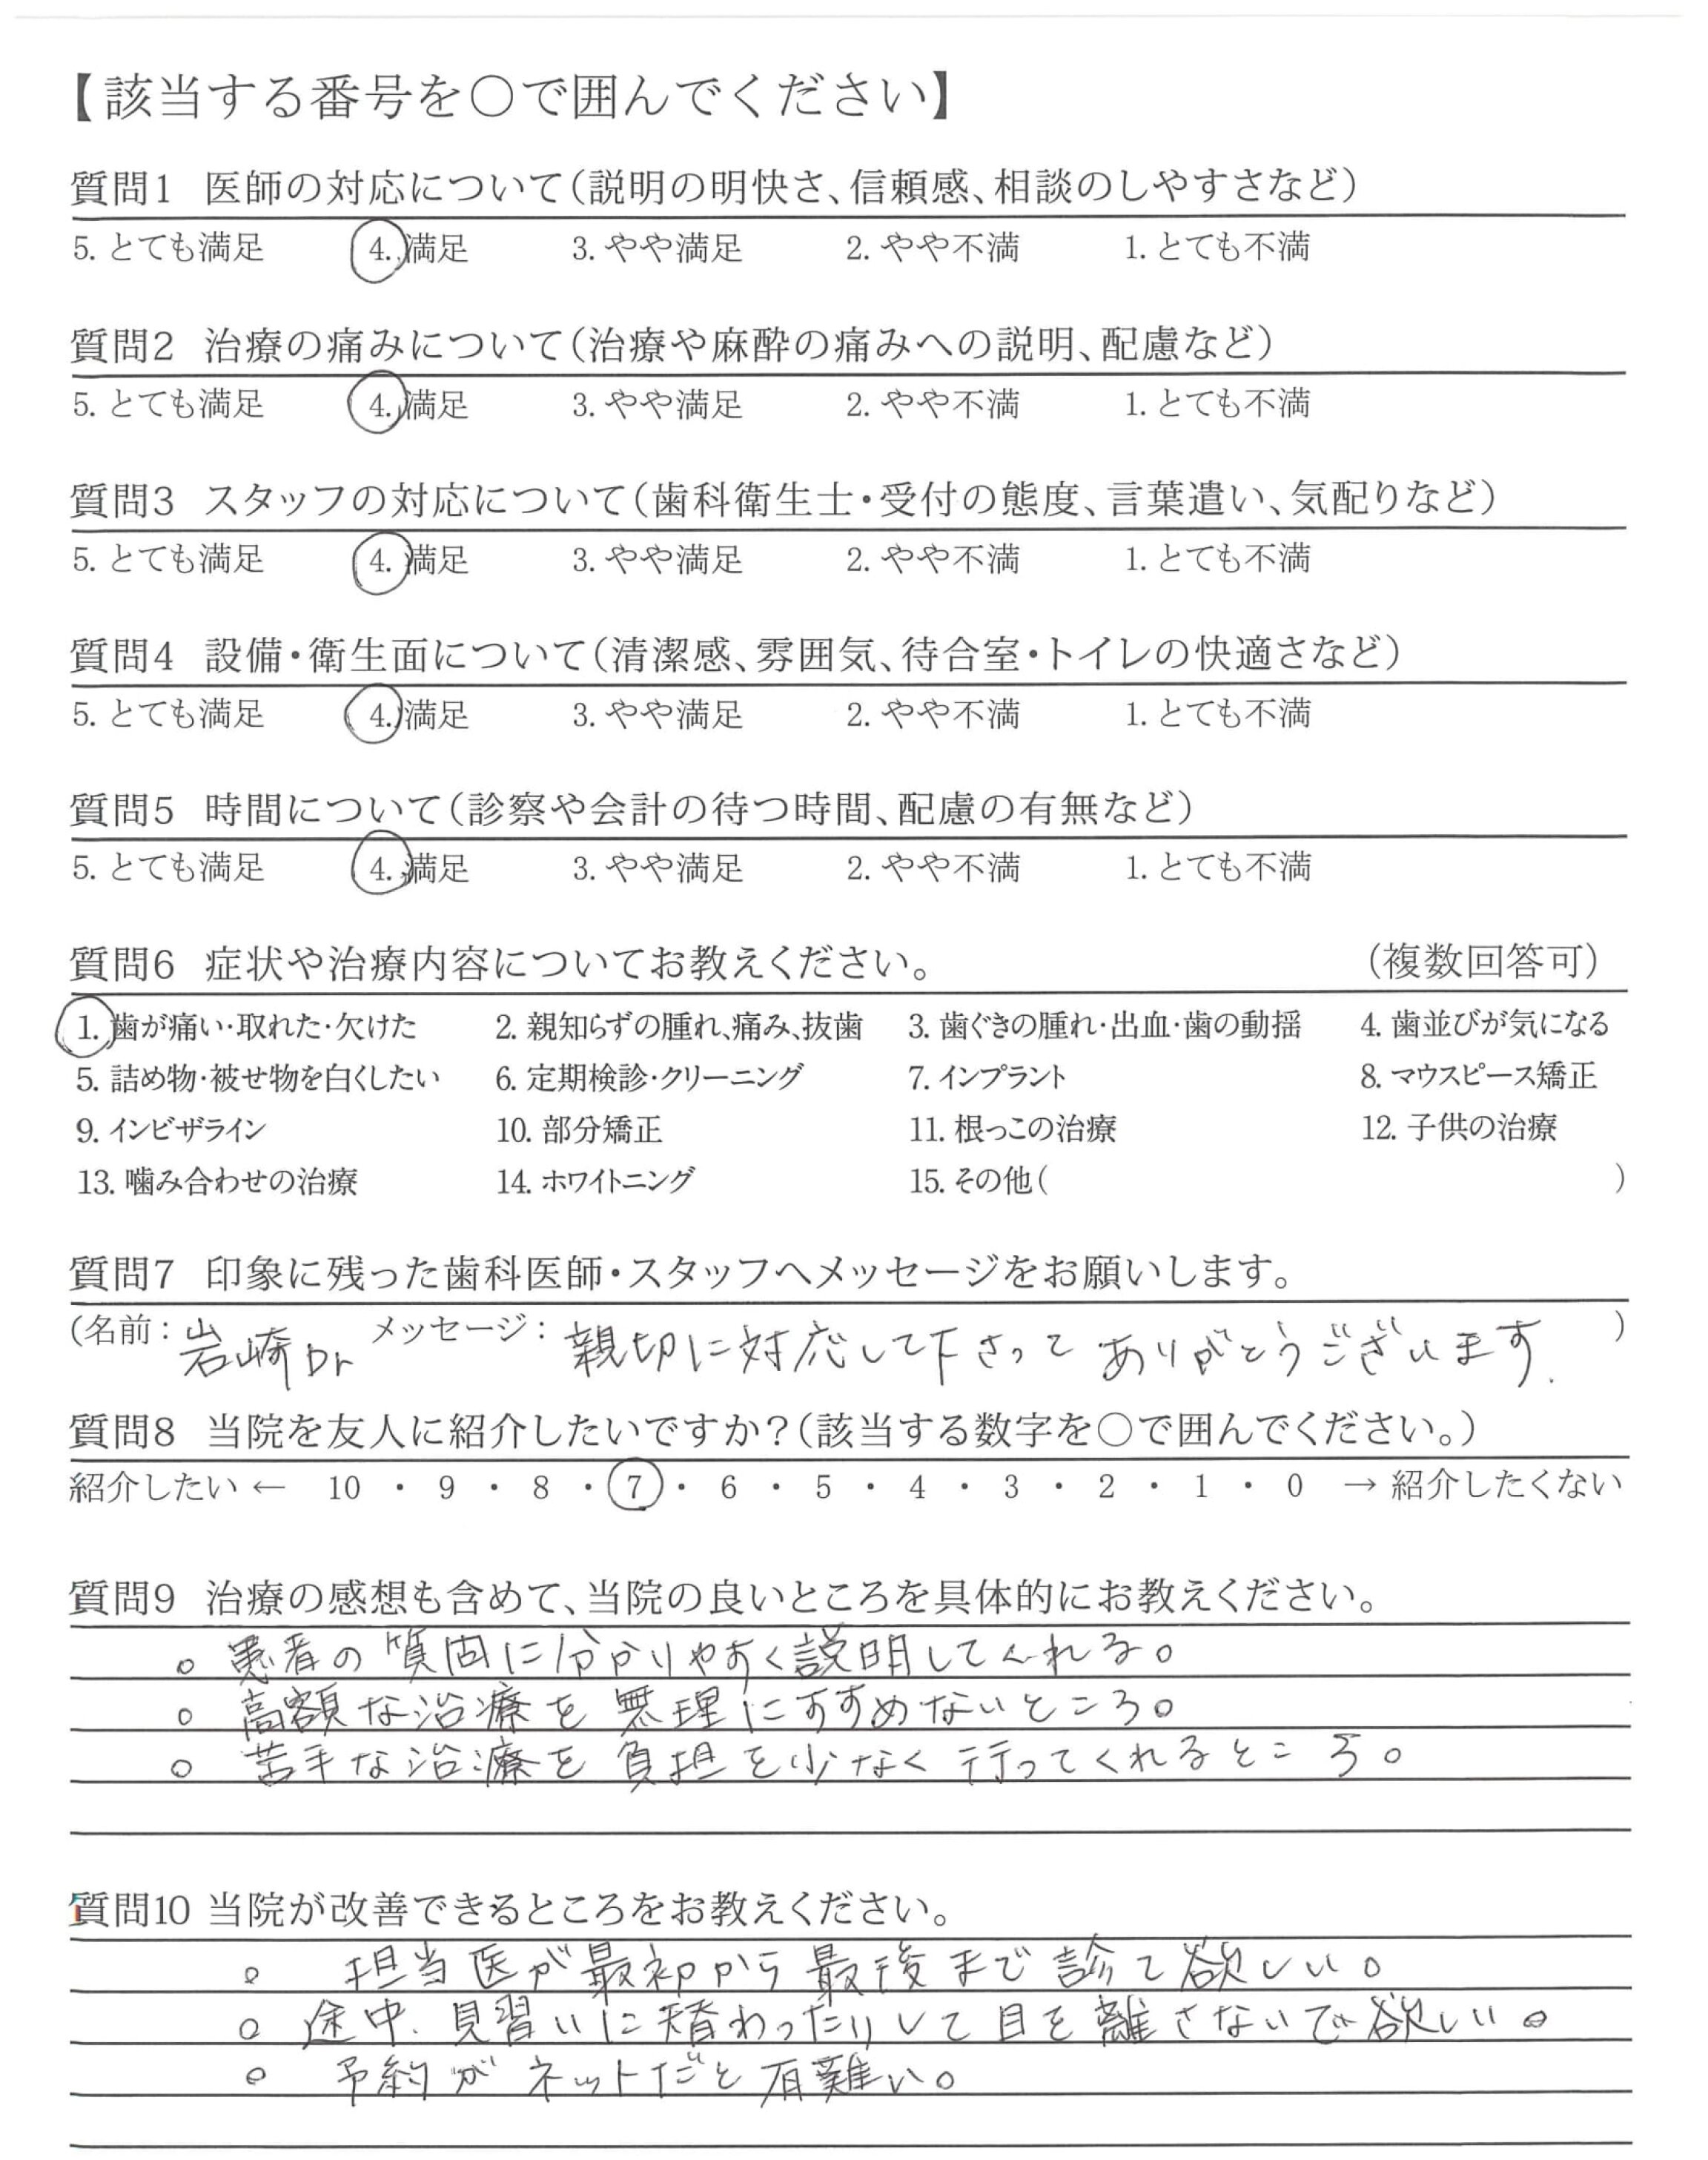 【該当する番号を〇で囲んでください】
質問1 医師の対応について(説明の明快さ、信頼感、相談のしやすさなど)
5. とても満足 4. 満足 3. やや満足 2. やや不満 1. とても不満
質問2 治療の痛みについて(治療や麻酔の痛みへの説明、配慮など)
5. とても満足 4. 満足 3. やや満足 2. やや不満 1. とても不満
質問3 スタッフの対応について(歯科衛生士・受付の態度、言葉遣い、気配りなど)
5. とても満足 4. 満足 3. やや満足 2. やや不満 1. とても不満
質問4 設備・衛生面について(清潔感、雰囲気、待合室・トイレの快適さなど)
5. とても満足 4. 満足 3. やや満足 2. やや不満 1. とても不満
質問5 時間について(診察や会計の待つ時間、配慮の有無など)
5. とても満足 4. 満足 3. やや満足 2. やや不満 1. とても不満
質問6 症状や治療内容についてお教えください。 (複数回答可)
1. 歯が痛い・取れた・欠けた 2. 親知らずの腫れ、痛み、抜歯 3. 歯ぐきの腫れ・出血・歯の動揺 4. 歯並びが気になる
5. 詰め物・被せ物を白くしたい 6. 定期検診・クリーニング 7. インプラント 8. マウスピース矯正
9. インビザライン 10. 部分矯正 11. 根っこの治療 12. 子供の治療
13. 噛み合わせの治療 14. ホワイトニング 15. その他( )
質問7 印象に残った歯科医師・スタッフへメッセージをお願いします。
(名前：岩崎Dr メッセージ：親切に対応して下さってありがとうございます. )
質問8 当院を友人に紹介したいですか？(該当する数字を〇で囲んでください。)
紹介したい ← 10 ・ 9 ・ 8 ・ 7 ・ 6 ・ 5 ・ 4 ・ 3 ・ 2 ・ 1 ・ 0 → 紹介したくない
質問9 治療の感想も含めて、当院の良いところを具体的にお教えください。
○ 患者の質問に分かりやすく説明してくれる。
○ 高額な治療を無理にすすめないところ。
○ 苦手な治療を負担を少なく行ってくれるところ。
質問10 当院が改善できるところをお教えください。
○ 担当医が最初から最後まで診て欲しい。
○ 途中、見習いに替わったりして目を離さないで欲しい。
○ 予約がネットだと有難い。